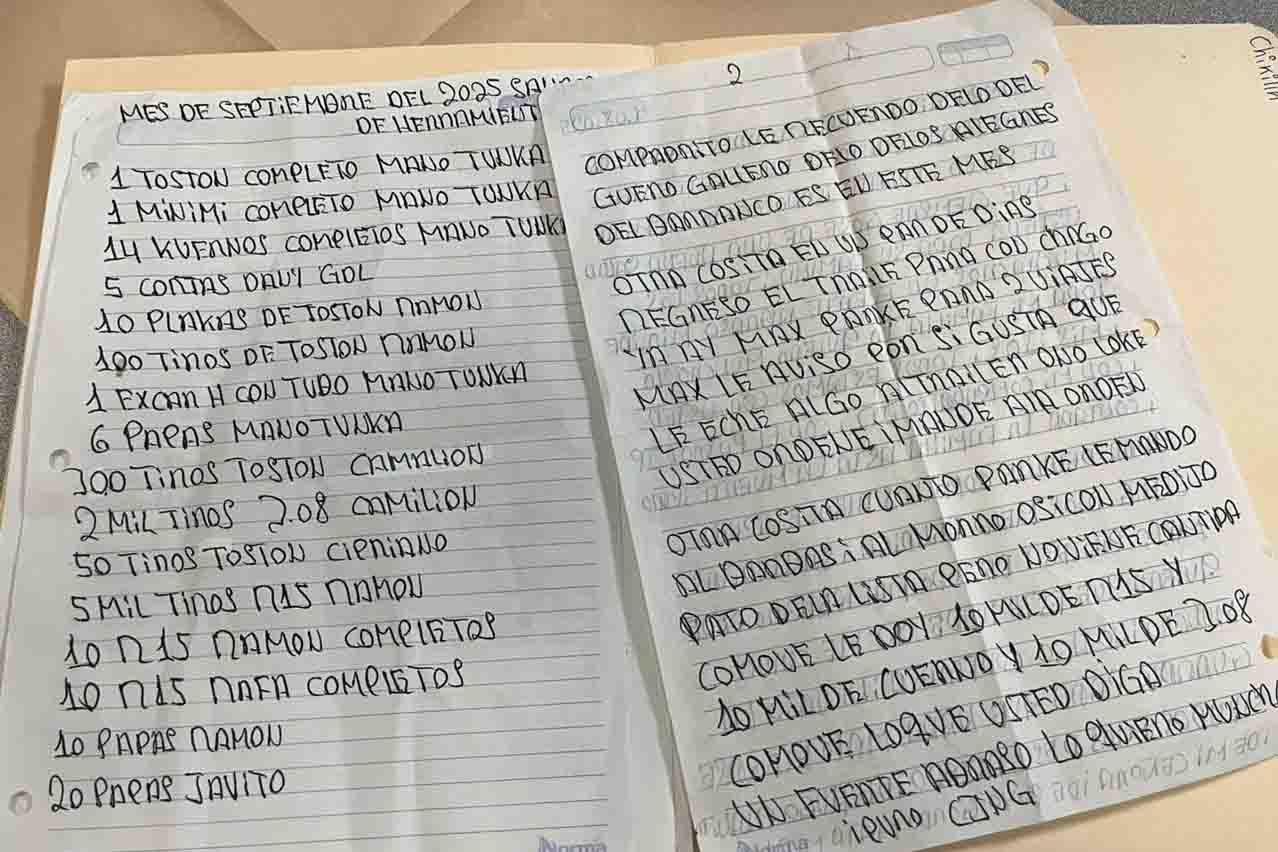 MES DE SEPTIEMBRE DEL 2025
DE HERRAMIENT
1 TOSTON COMPLETO MANO TUNKA
1 MINIMI COMPLETO MANO TUNKA
14 KUERNOS COMPLETOS MANO TUNK
5 CORTAS DAVY GOL
10 PLAKAS DE TOSTON RAMON
100 TIROS DE TOSTON RAMON
1 EXCAR H CON TUBO MANO TUNKA
6 PAPAS MANO TUNKA
300 TIROS TOSTON CAMALION
2 MIL TIROS 2.08 CAMILION
50 TIROS TOSTON CIPRIANO
5 MIL TIROS R15 RAMON
10 R15 RAMON COMPLETOS
10 R15 RAFA COMPLETOS
10 PAPAS RAMON
20 PAPAS JAVITO
Norma
2
COMPADRITO LE RECUERDO DELO DEL
GUERO GALLERO DELO DELOS ALEGRES
DEL BARRANCO ES EN ESTE MES
OTRA COSITA EN UN PAR DE DIAS
REGRESO EL TRAILE PARA CON CHAGO
YA AY MAX PARKE PARA 2 VIAJES
MAX LE AVISO POR SI GUSTA QUE
LE ECHE ALGO ALTRAILER OHO LOKE
USTED ORDENE I MANDE ALA ORDEN
OTRA COSITA CUANTO PARKE LE MANDO
AL BARBAS I AL MORRO OSICON MEDIJO
PATO DELA LISTA PERO NOVIENE CANTIDA
COMOVE LE DOY 10 MIL DE R15 Y
10 MIL DE CUERNO Y 10 MIL DE 2.08
COMOVE LOQUE USTED DIGA
UN FUERTE ABRASO LO QUIERO MUNCH
I PURO CJNG
Norma
Chikilin